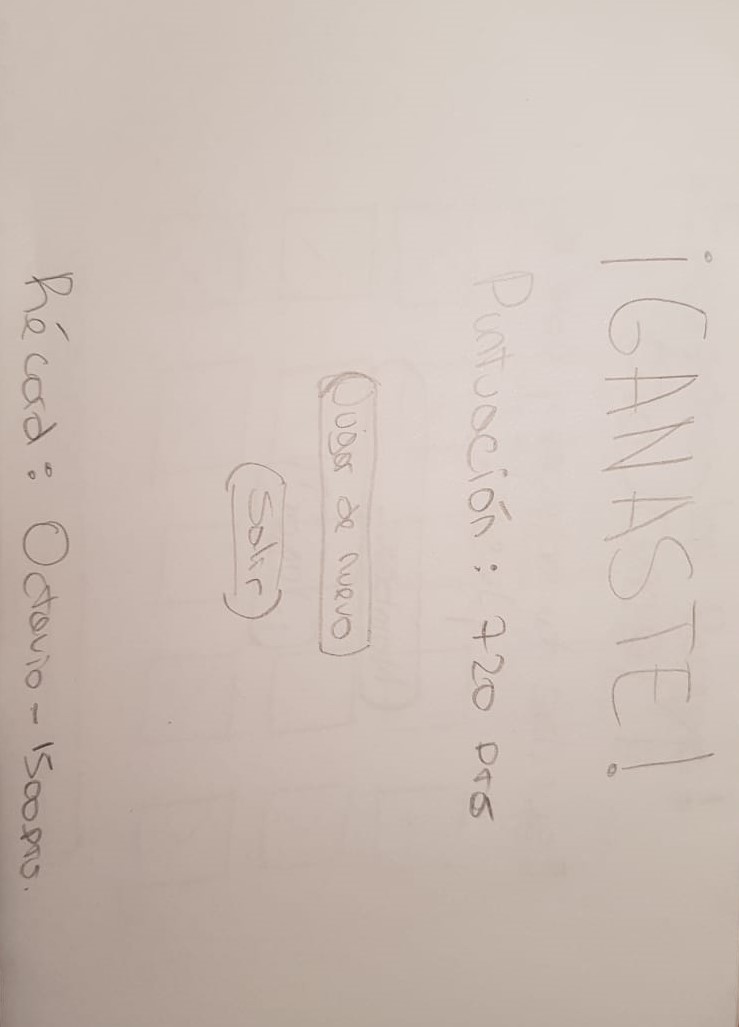 ¡GANASTE!
Puntuación: 720 pts
de nuevo
Salir
Récord: Octavio - 1500pts.